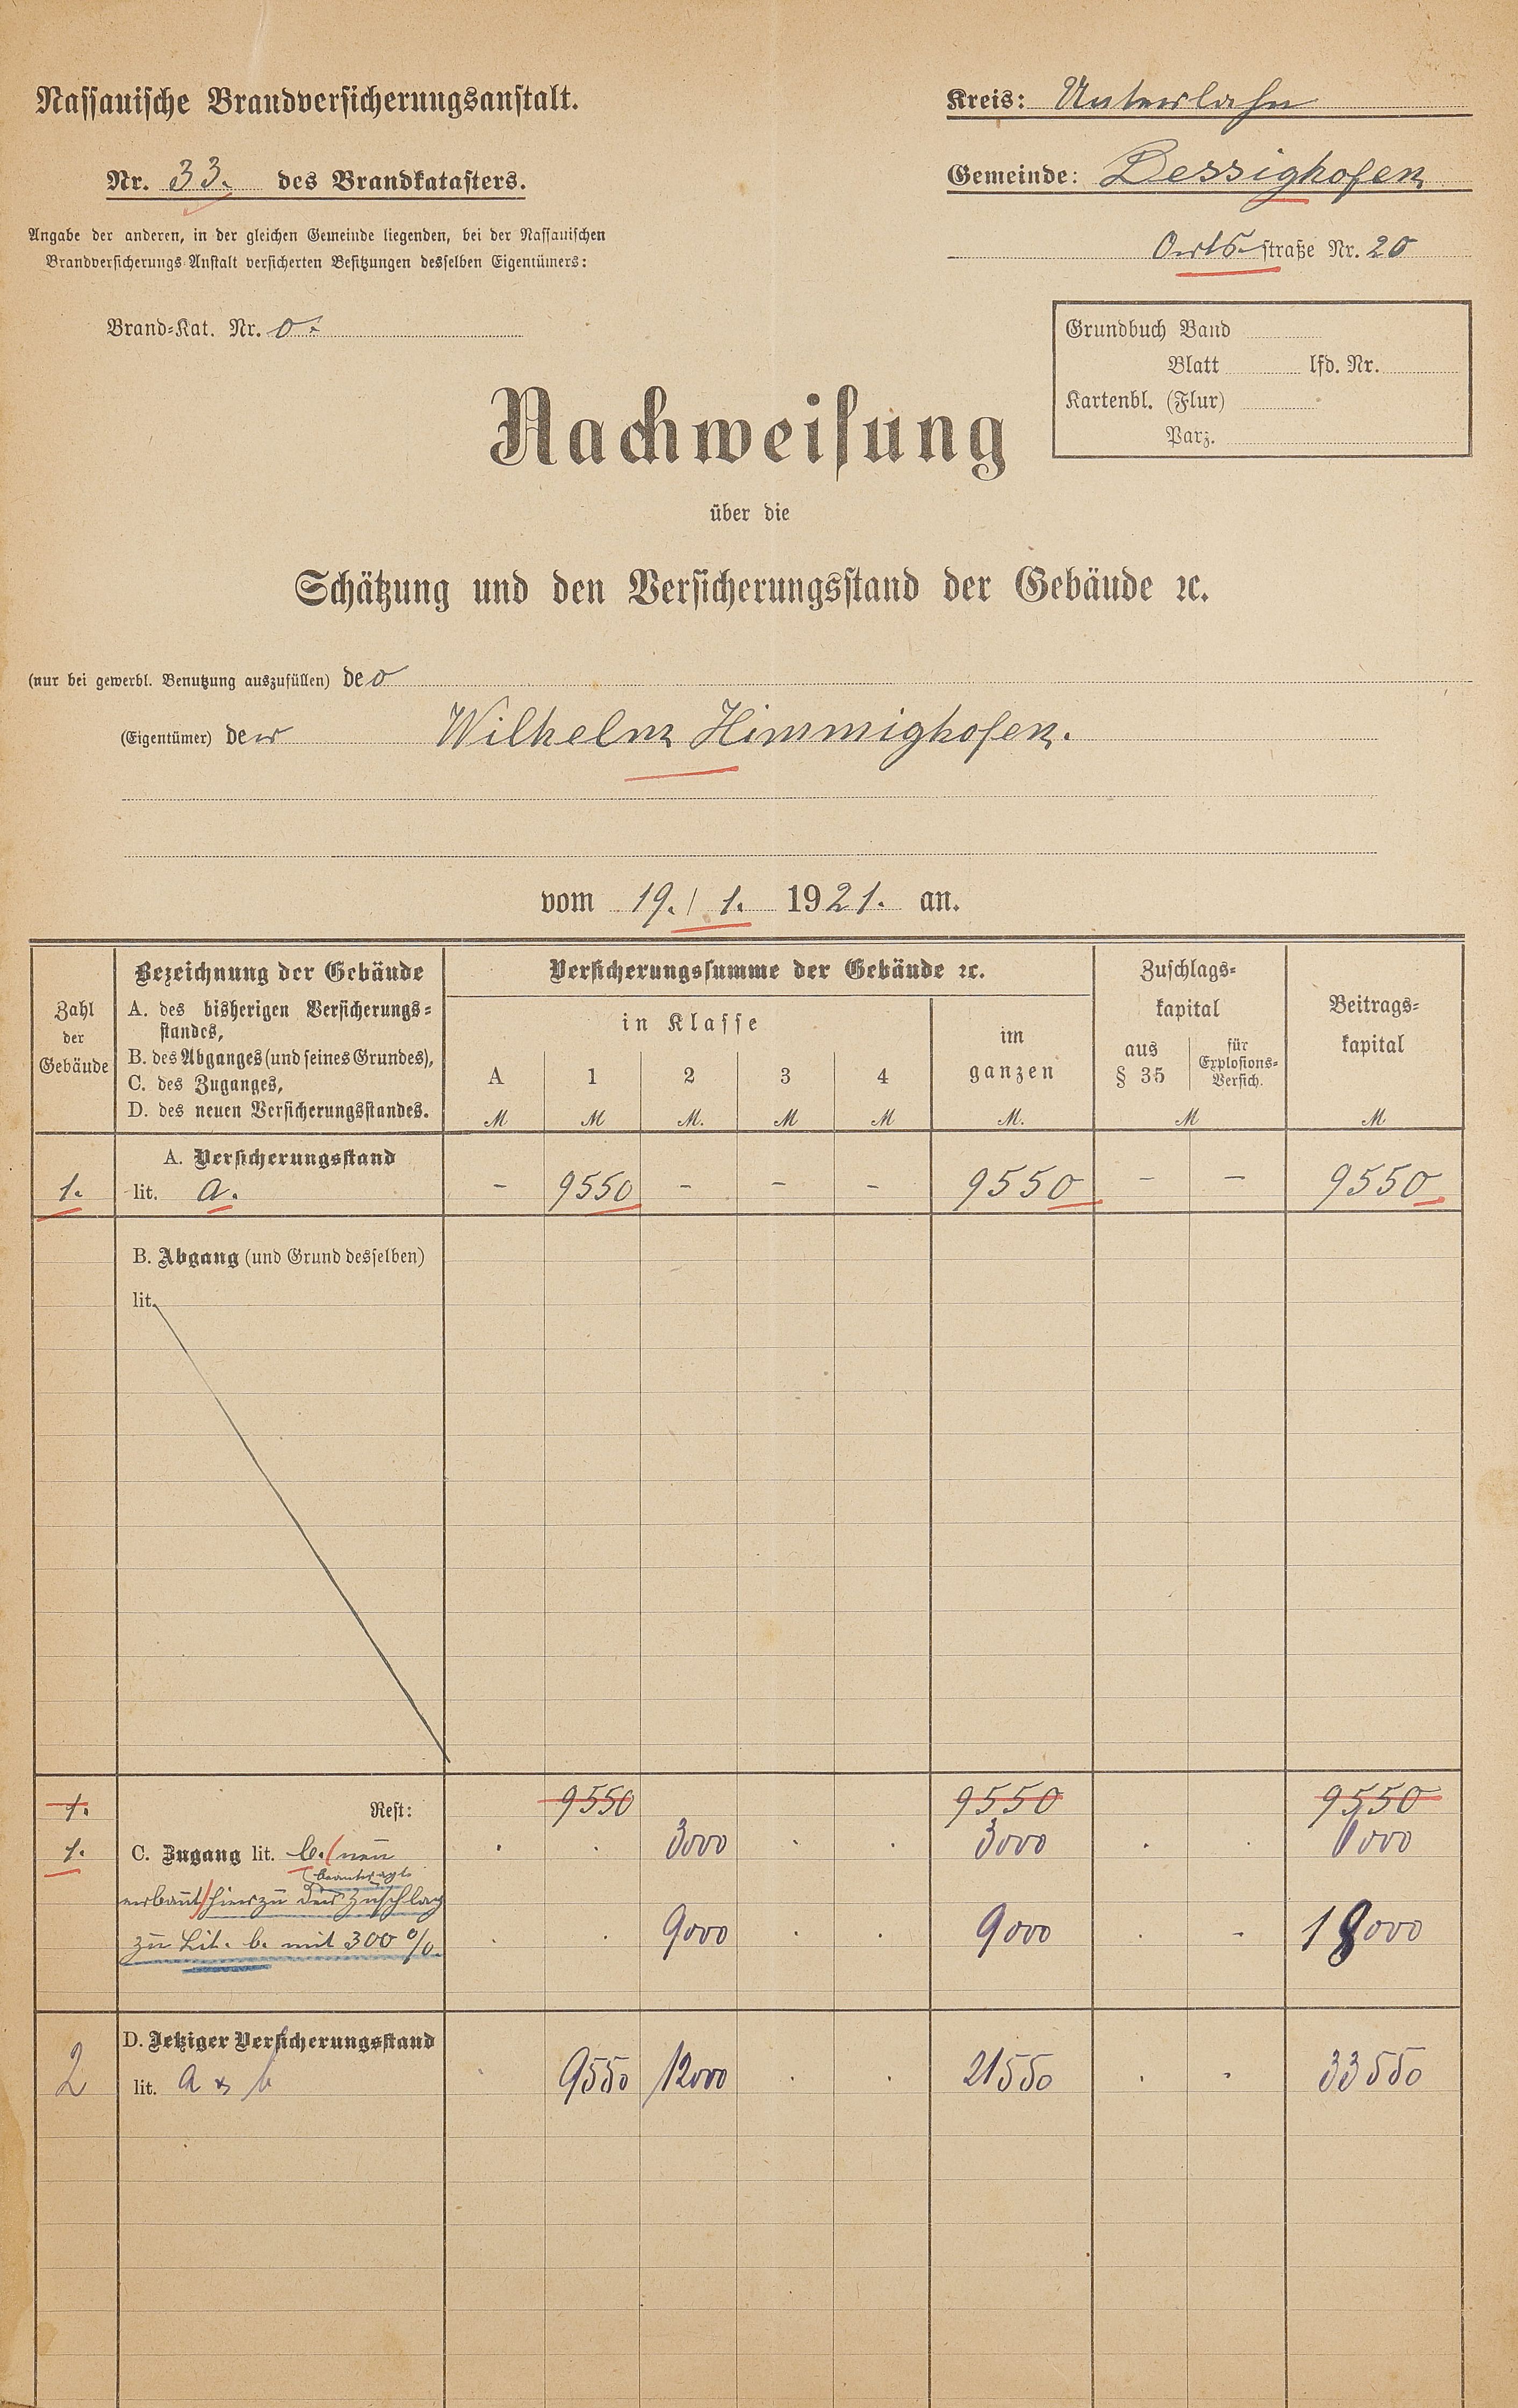 Nassauische Brandversicherungsanstalt.
Kreis: Unterlahn
Nr. 33. des Brandkatasters.
Gemeinde: Dessighofen
Angabe der anderen, in der gleichen Gemeinde liegenden, bei der Nassauischen
Brandversicherungs-Anstalt versicherten Besitzungen desselben Eigentümers:
Orts-straße Nr. 20
Brand-Kat. Nr. 0.
Grundbuch Band
Blatt lfd. Nr.
Kartenbl. (Flur)
Parz.
Nachweisung
über die
Schätzung und den Versicherungsstand der Gebäude ꝛc.
(nur bei gewerbl. Benutzung auszufüllen) de
(Eigentümer) der Wilhelm Himmighofen.
vom 19./1. 1921. an.
Zahl
der
Gebäude
Bezeichnung der Gebäude
A. des bisherigen Versicherungs-
standes,
B. des Abganges (und seines Grundes),
C. des Zuganges,
D. des neuen Versicherungsstandes.
Versicherungssumme der Gebäude ꝛc.
in Klasse
A 1 2 3 4
M M M. M M
im
ganzen
M.
Zuschlags-
kapital
aus
§ 35
für
Explosions-
Versich.
M
Beitrags-
kapital
M.
A. Versicherungsstand
1. lit. a. – 9550 – – – 9550 – – 9550
B. Abgang (und Grund desselben)
lit.
1. Rest: 9550 9550 9550
1. C. Zugang lit. b. (neu 3000 3000 000
beantragt
erbaut) hierzu der Zuschlag
zu Lit. b. mit 300 %. 9000 9000 - 18000
D. Jetziger Versicherungsstand
2 lit. a & b 9550 12000 21550 33550